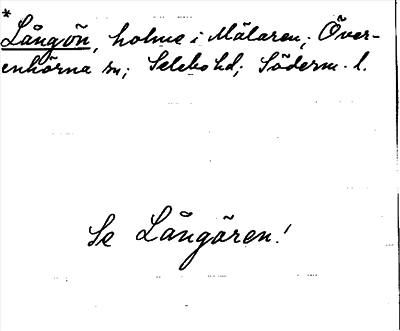 * Långön, holme i Mälaren; Över-
enhörna sn; Selebo hd; Söderm. l.
Se Långören!